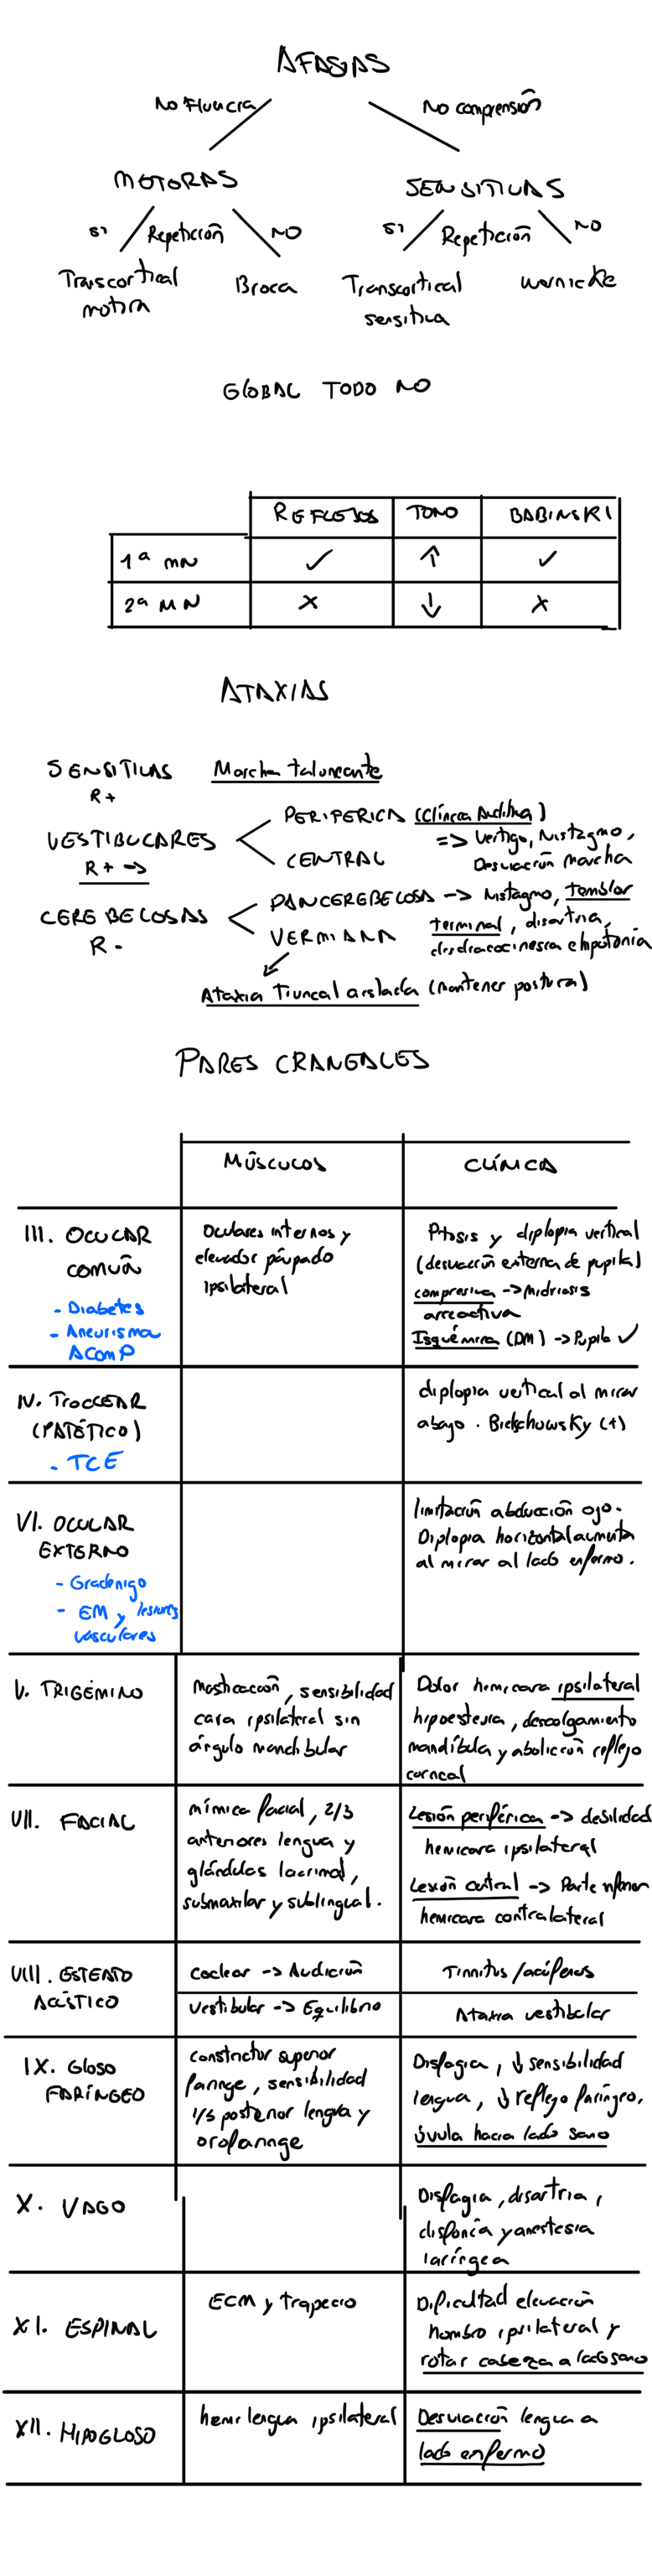 AFASIAS
No Fluencia No comprensión
MOTORAS SENSITIVAS
Sí Repetición NO Sí Repetición NO
Transcortical Broca Transcortical Wernicke
motora sensitiva
GLOBAL TODO NO
REFLEJOS TONO BABINSKI
1ª MN ✓ ↑ ✓
2ª MN X ↓ X
ATAXIAS
SENSITIVAS Marcha taloneante
R +
PERIFERICA (Clínica Auditiva)
VESTIBULARES => Vertigo, Nistagmo,
R + -> CENTRAL Desviación marcha
PANCEREBELOSA -> Nistagmo, temblor
CEREBELOSAS terminal, disartria,
R - VERMIANA disdiadococinesia e hipotonía
Ataxia Truncal aislada (mantener postura)
PARES CRANEALES
MÚSCULOS CLÍNICA
III. OCULAR
COMÚN
- Diabetes
- Aneurisma
AComP
Oculares internos y
elevador párpado
ipsilateral
Ptosis y diplopia vertical
(desviación externa de pupila)
compresiva -> Midriasis
arreactiva
Isquémica (DM) -> Pupila ✓
IV. TROCLEAR
(PATÉTICO)
- TCE
diplopia vertical al mirar
abajo. Bielschowsky (+)
VI. OCULAR
EXTERNO
- Gradenigo
- EM y lesiones
vasculares
limitación abducción ojo.
Diplopia horizontal aumenta
al mirar al lado enfermo.
V. TRIGÉMINO
Masticación, sensibilidad
cara ipsilateral sin
ángulo mandibular
Dolor hemicara ipsilateral
hipoestesia, descolgamiento
mandíbula y abolición reflejo
corneal
VII. FACIAL
mímica facial, 2/3
anteriores lengua y
glándulas lacrimal,
submaxilar y sublingual.
Lesión periférica -> debilidad
hemicara ipsilateral
Lesión central -> Parte inferior
hemicara contralateral
VIII. ESTEATO
ACÚSTICO
Coclear -> Audición
Vestibular -> Equilibrio
Tinnitus / acúfenos
Ataxia vestibular
IX. Gloso
FARÍNGEO
constrictor superior
faringe, sensibilidad
1/3 posterior lengua y
orofaringe
Disfagia, ↓ sensibilidad
lengua, ↓ reflejo faríngeo,
úvula hacia lado sano
X. VAGO
Disfagia, disartria,
disfonía y anestesia
laríngea
XI. ESPINAL
ECM y trapecio
Dificultad elevación
hombro ipsilateral y
rotar cabeza a lado sano
XII. HIPOGLOSO
hemilengua ipsilateral
Desviación lengua a
lado enfermo